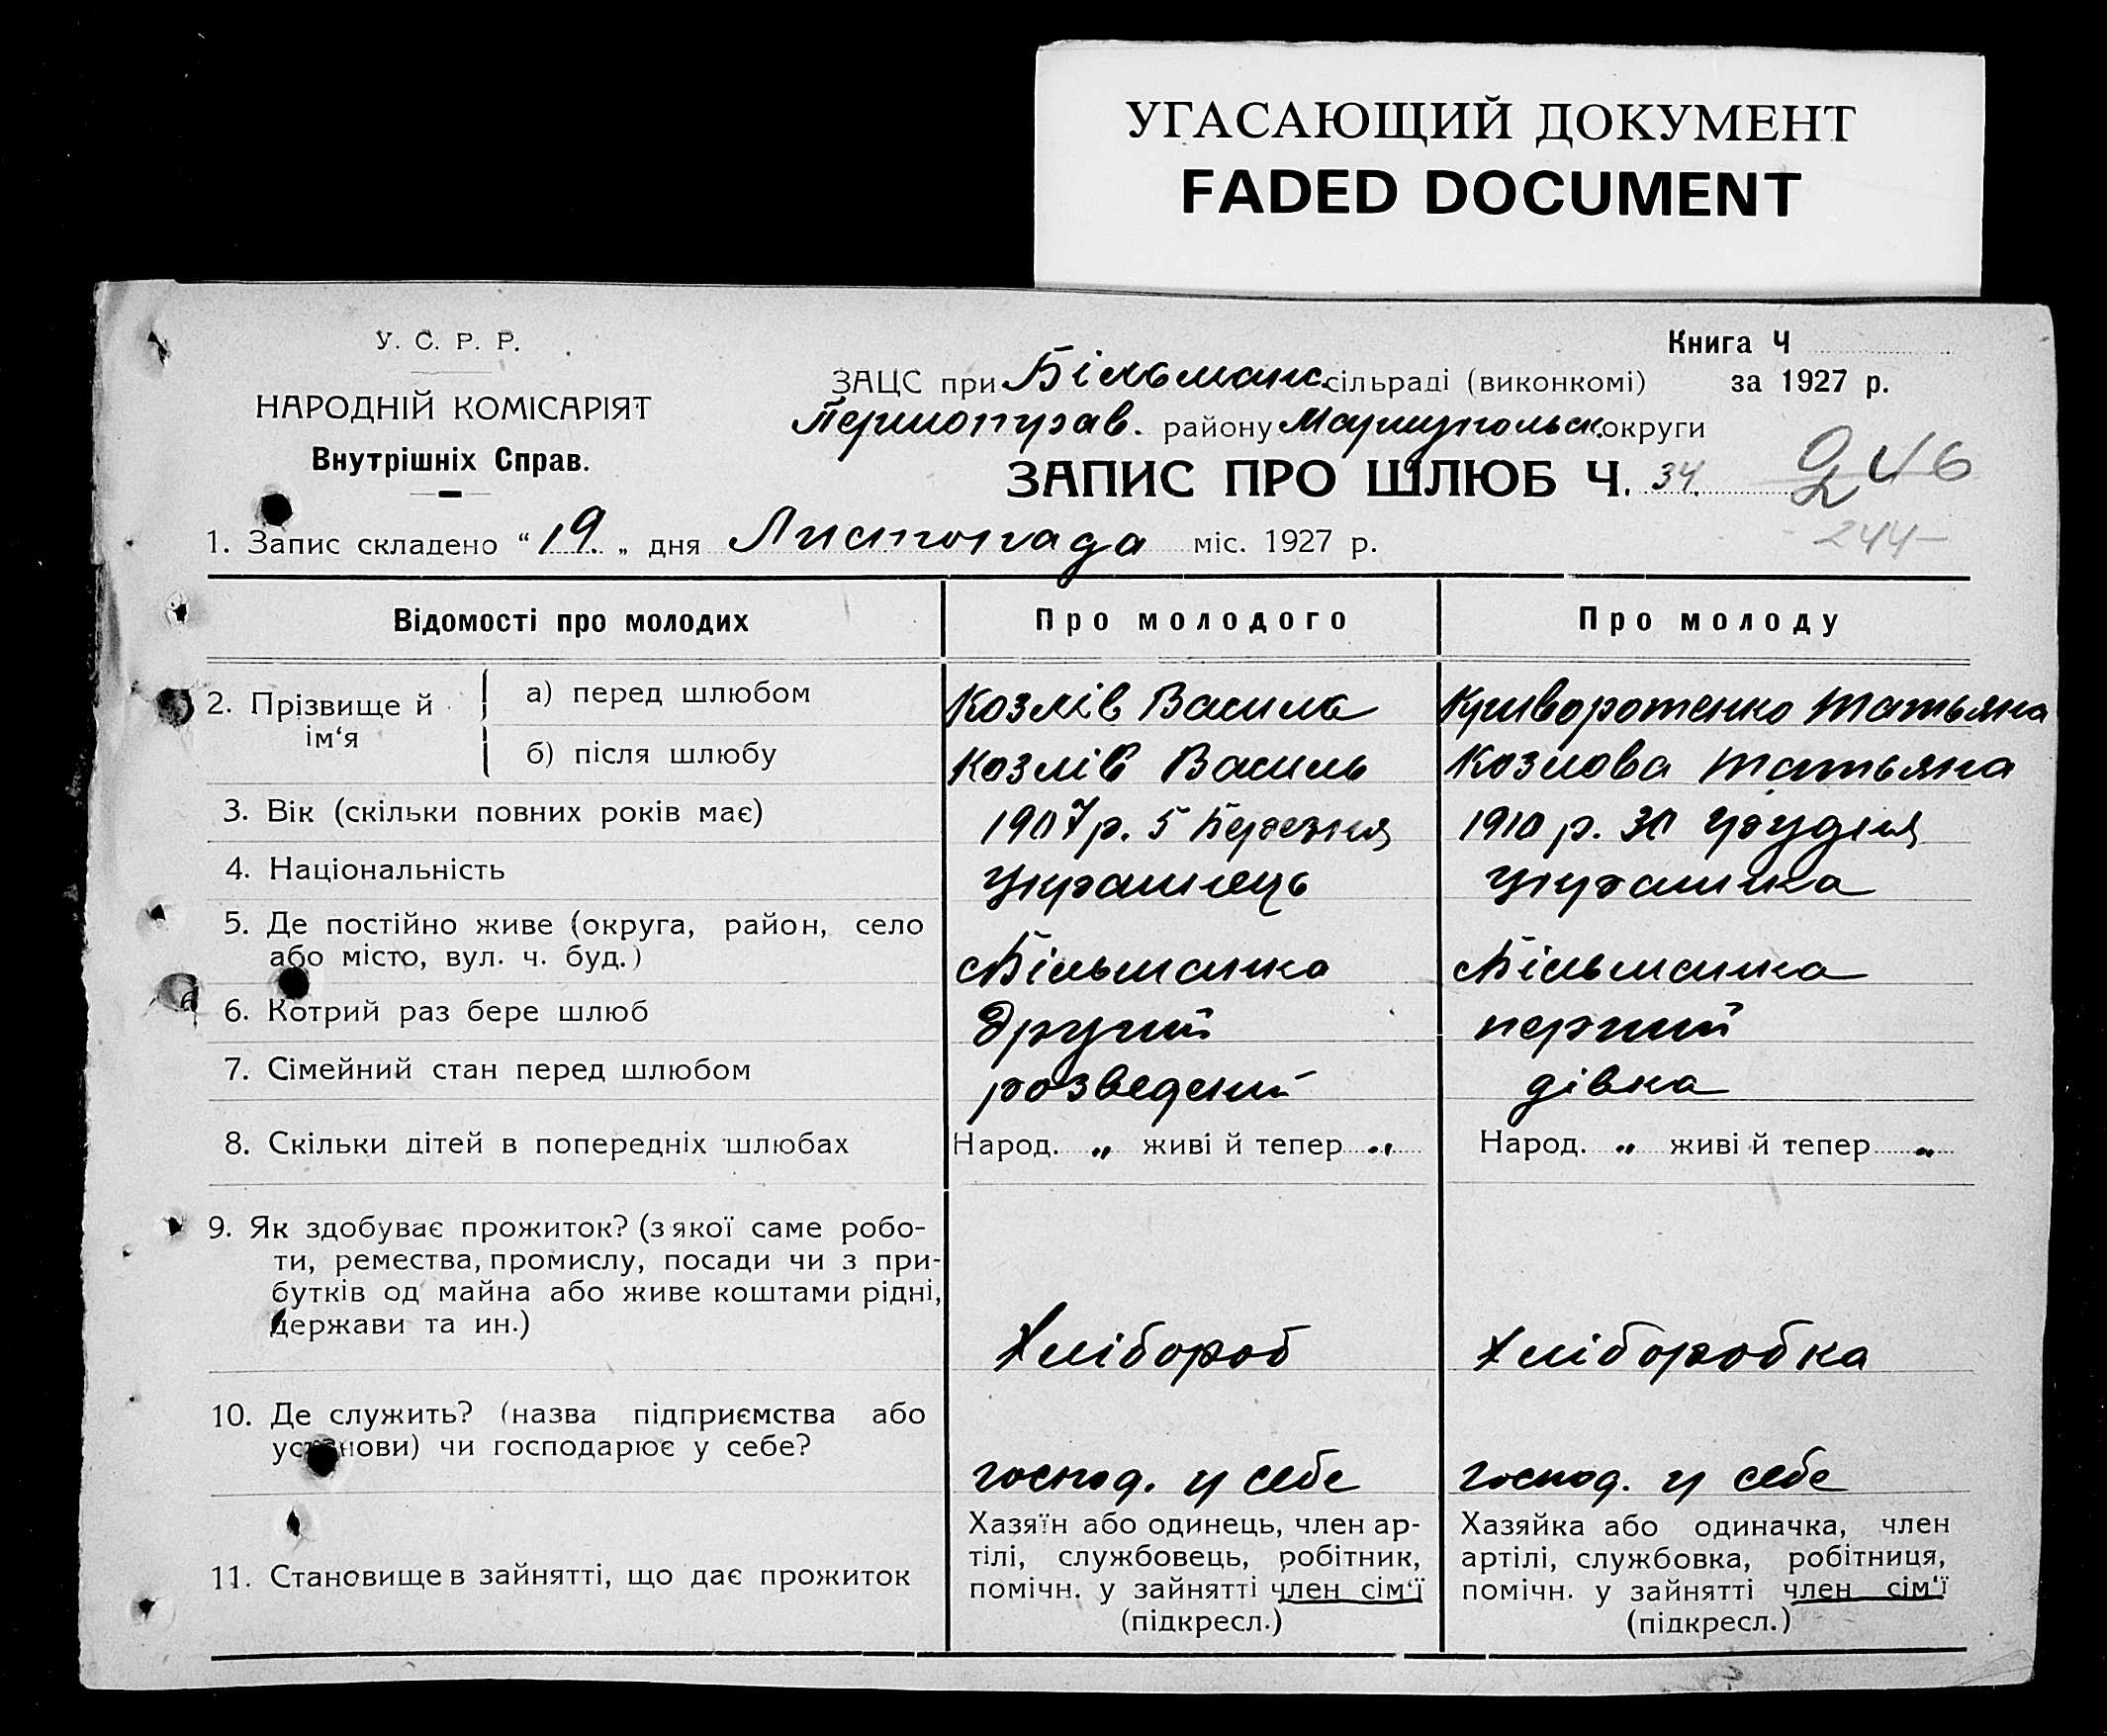 УГАСАЮЩИЙ ДОКУМЕНТ
FADED DOCUMENT
У. С. Р. Р.
НАРОДНІЙ КОМІСАРІЯТ
Внутрішніх Справ.
Книга Ч
ЗАЦС при Більманс. сільраді (виконкомі) за 1927 р.
району Мариупольск. округи
ЗАПИС ПРО ШЛЮБ Ч. 34. 246
244
1. Запис складено “19.„ дня Листопада міс. 1927 р.
Відомості про молодих Про молодого Про молоду
2. Прізвище й ім‘я
а) перед шлюбом Козлів Василь Криворотенко Татьяна
б) після шлюбу Козлів Василь Козлова Татьяна
3. Вік (скільки повних років має) 1907 р. 5 Березня 1910 р. 30 Грудня
4. Національність Українець Українка
5. Де постійно живе (округа, район, село
або місто, вул. ч. буд.) Більманка Більманка
6. Котрий раз бере шлюб другий перший
7. Сімейний стан перед шлюбом розведений дівка
8. Скільки дітей в попередніх шлюбах Народ. „ живі й тепер „ Народ. „ живі й тепер „
9. Як здобуває прожиток? (з якої саме робо-
ти, ремества, промислу, посади чи з при-
бутків од майна або живе коштами рідні,
держави та ин.) Хлібороб Хліборобка
10. Де служить? (назва підприємства або
установи) чи господарює у себе? господ. у себе господ. у себе
11. Становище в зайнятті, що дає прожиток
Хазяїн або одинець, член ар-
тілі, службовець, робітник,
помічн. у зайнятті член сім‘ї
(підкресл.)
Хазяйка або одиначка, член
артілі, службовка, робітниця,
помічн. у зайнятті член сім‘ї
(підкресл.)